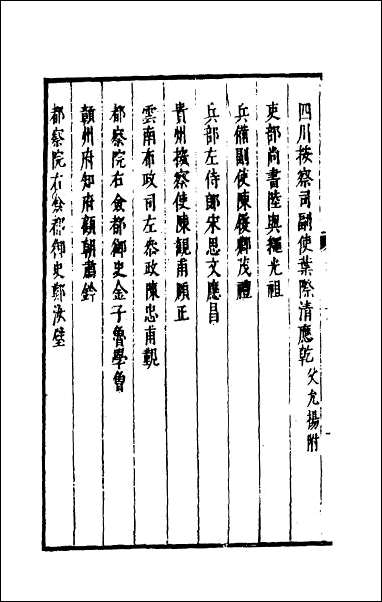 四川按察司副使葉際清應乾父允揚附
吏部尚書陸與繩光祖
兵備副使陳後鄉茂禮
兵部左侍郎宋思文應昌
貴州按察使陳観甫願正
雲南布政司左叅政陳忠甫覲
都察院右僉都御史金子魯學曾
贛州府知府顧朝肅鈐
都察院右僉都御史鄭汝璧